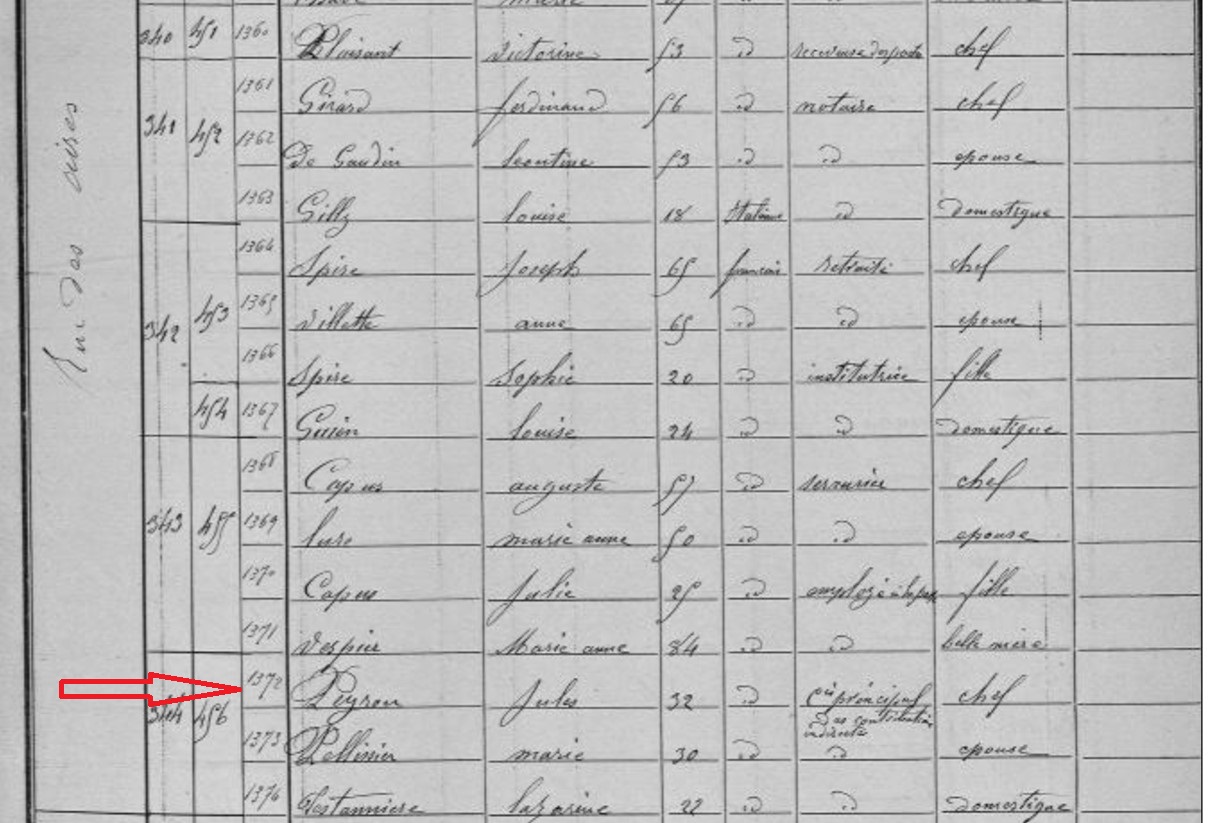 340 451 1360 Plaisant victorine 53 d receveuse des postes chef
341 452 1361 Girard ferdinand 56 d notaire chef
1362 De Gaudin leontine 53 d d epouse
1363 Gilly louise 18 Italienne d domestique
342 453 1364 Spire Joseph 65 francais retraité chef
1365 Villette anne 65 d d epouse
1366 Spire Sophie 20 d institutrice fille
454 1367 louise 24 d d domestique
343 455 1368 Capus auguste 57 d serrurier chef
1369 marie anne 50 d d epouse
1370 Capus Julie 25 d fille
1371 Vespier Marie anne 84 d d belle mère
344 456 1372 Peyron Jules 32 d principal chef
des contributions
indirectes
1373 Pellissier marie 30 d d epouse
1374 Lestanniere lazarine 22 d d domestique
Rue des aires